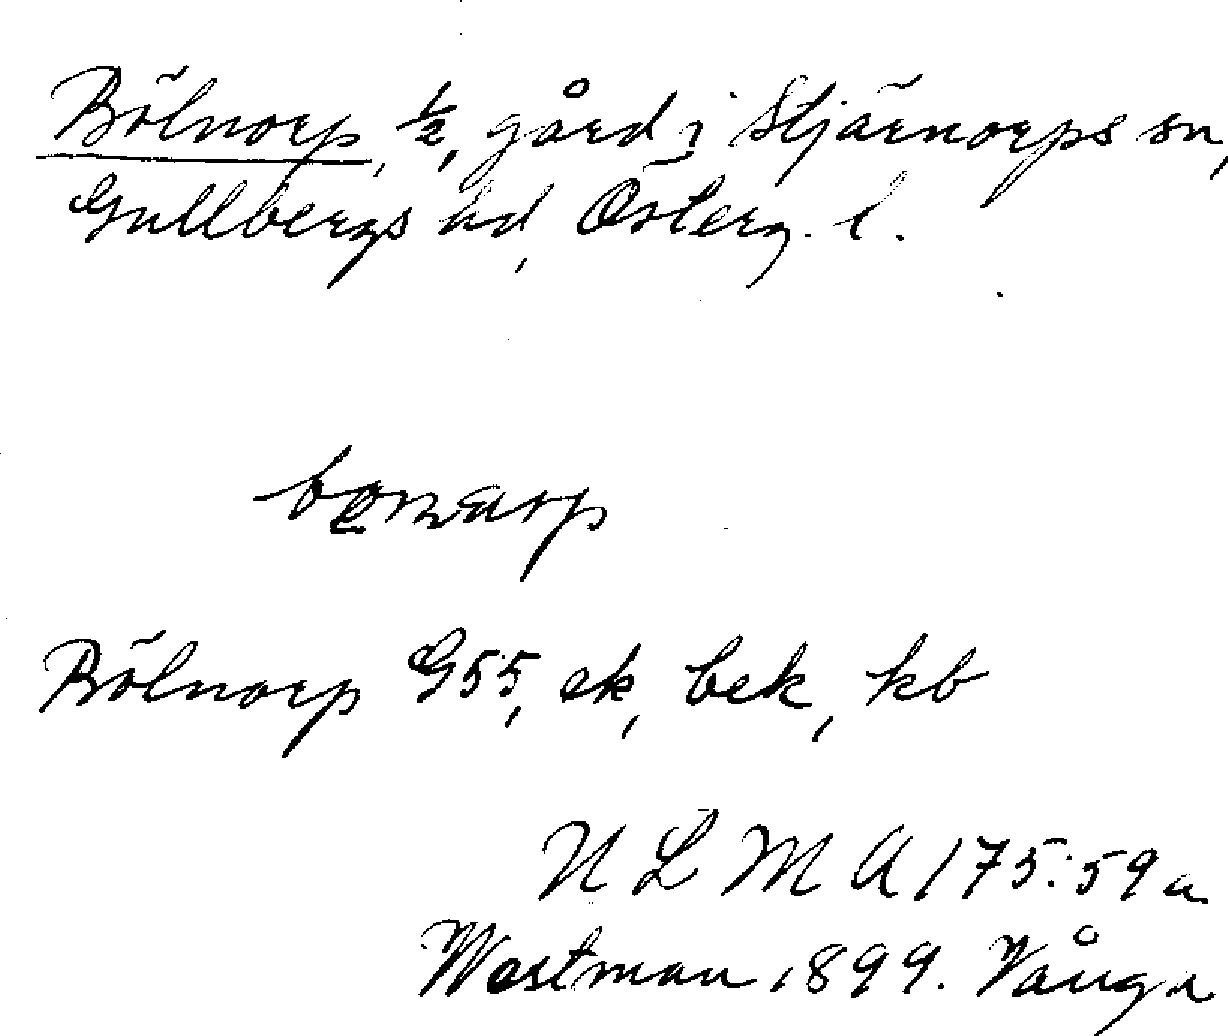 Bölnorp, ½, gård i Stjärnorps sn,
Gullbergs hd, Österg. l.
Bölnorp G55, ek, bek, kb
N L M A 175:59 a
Westman 1899. Vånga